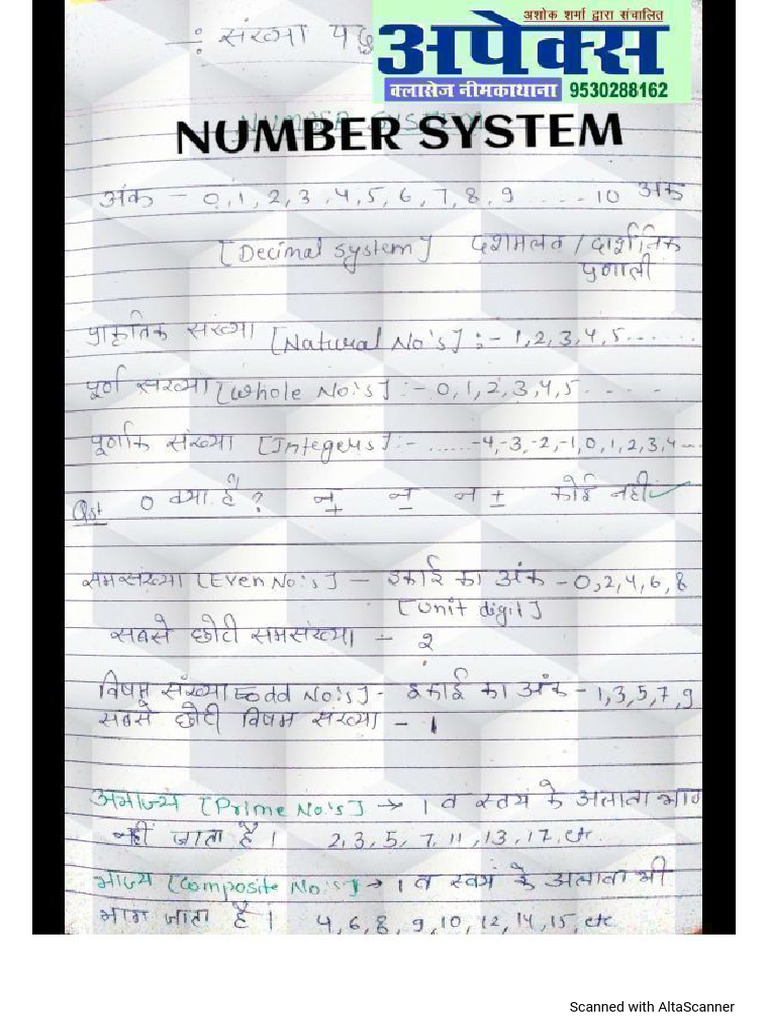 अशोक शर्मा द्वारा संचालित
-: संख्या पद्
अपेक्स
क्लासेज नीमकाथाना 9530288162
NUMBER SYSTEM
अंक - 0,1,2,3,4,5,6,7,8,9 .... 10 अंक
[Decimal system] दशमलव / दाशमिक
प्रणाली
प्राकृतिक संख्या [Natural No's] :- 1,2,3,4,5......
पूर्ण संख्या [Whole No's] :- 0,1,2,3,4,5.....
पूर्णांक संख्या [Integers] :- ......-4,-3,-2,-1,0,1,2,3,4...
Qst 0 क्या है? न + न - न ± कोई नही ✓
समसंख्या [Even No's] - इकाई का अंक - 0,2,4,6,8
[Unit digit]
सबसे छोटी समसंख्या - 2
विषम संख्या [odd No's] - इकाई का अंक - 1,3,5,7,9
सबसे छोटी विषम संख्या - 1
अभाज्य [Prime No's] → 1 व स्वयं के अलावा भाग
नहीं जाता है। 2,3,5,7,11,13,17, etc.
भाज्य [Composite No's] → 1 व स्वयं के अलावा भी
भाग जाता है। 4,6,8,9,10,12,14,15, etc.
Scanned with AltaScanner